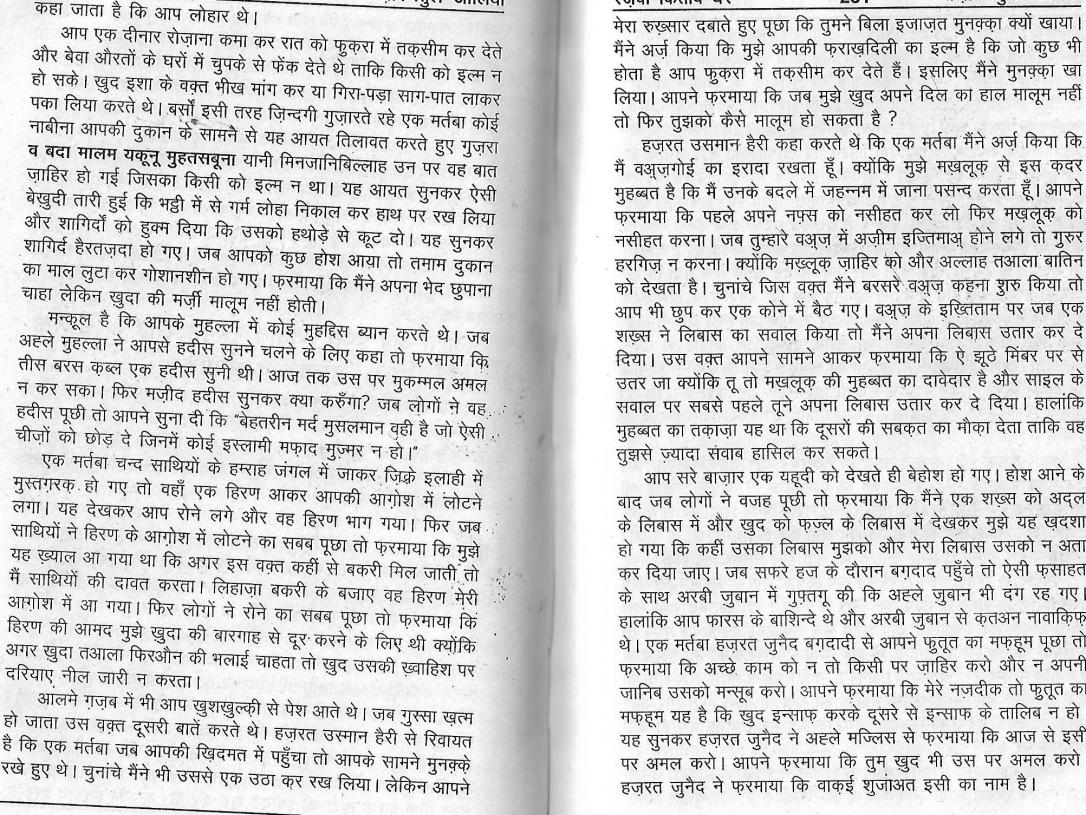 कहा जाता है कि आप लोहार थे।
आप एक दीनार रोज़ाना कमा कर रात को फुक़रा में तक़सीम कर देते
और बेवा औरतों के घरों में चुपके से फेंक देते थे ताकि किसी को इल्म न
हो सके। खुद इशा के वक़्त भीख मांग कर या गिरा-पड़ा साग-पात लाकर
पका लिया करते थे। बर्सों इसी तरह ज़िन्दगी गुज़ारते रहे एक मर्तबा कोई
नाबीना आपकी दुकान के सामने से यह आयत तिलावत करते हुए गुज़रा
व बदा मालम यकूनू मुहतसबूना यानी मिनजानिबिल्लाह उन पर वह बात
ज़ाहिर हो गई जिसका किसी को इल्म न था। यह आयत सुनकर ऐसी
बेखुदी तारी हुई कि भट्टी में से गर्म लोहा निकाल कर हाथ पर रख लिया
और शागिर्दों को हुक्म दिया कि उसको हथोड़े से कूट दो। यह सुनकर
शागिर्द हैरतज़दा हो गए। जब आपको कुछ होश आया तो तमाम दुकान
का माल लुटा कर गोशानशीन हो गए। फ़रमाया कि मैंने अपना भेद छुपाना
चाहा लेकिन ख़ुदा की मर्ज़ी मालूम नहीं होती।
मन्कूल है कि आपके मुहल्ला में कोई मुहद्दिस ब्यान करते थे। जब
अहले मुहल्ला ने आपसे हदीस सुनने चलने के लिए कहा तो फ़रमाया कि
तीस बरस क़ब्ल एक हदीस सुनी थी। आज तक उस पर मुकम्मल अमल
न कर सका। फिर मज़ीद हदीस सुनकर क्या करुँगा? जब लोगों ने वह
हदीस पूछी तो आपने सुना दी कि “बेहतरीन मर्द मुसलमान वही है जो ऐसी
चीज़ों को छोड़ दे जिनमें कोई इस्लामी मफ़ाद मुज़्मर न हो।”
एक मर्तबा चन्द साथियों के हम्राह जंगल में जाकर ज़िक्रे इलाही में
मुस्तग़रक़ हो गए तो वहाँ एक हिरण आकर आपकी आग़ोश में लोटने
लगा। यह देखकर आप रोने लगे और वह हिरण भाग गया। फिर जब
साथियों ने हिरण के आग़ोश में लोटने का सबब पूछा तो फ़रमाया कि मुझे
यह ख़्याल आ गया था कि अगर इस वक़्त कहीं से बकरी मिल जाती तो
मैं साथियों की दावत करता। लिहाज़ा बकरी के बजाए वह हिरण मेरी
आग़ोश में आ गया। फिर लोगों ने रोने का सबब पूछा तो फ़रमाया कि
हिरण की आमद मुझे ख़ुदा की बारगाह से दूर करने के लिए थी क्योंकि
अगर खुदा तआला फिरऔन की भलाई चाहता तो खुद उसकी ख़्वाहिश पर
दरियाए नील जारी न करता।
आलमे ग़ज़ब में भी आप खुशखुल्की से पेश आते थे। जब गुस्सा ख़त्म
हो जाता उस वक़्त दूसरी बातें करते थे। हज़रत उस्मान हैरी से रिवायत
है कि एक मर्तबा जब आपकी ख़िदमत में पहुँचा तो आपके सामने मुनक़्के
रखे हुए थे। चुनांचे मैंने भी उससे एक उठा कर रख लिया। लेकिन आपने
मेरा रुख़्सार दबाते हुए पूछा कि तुमने बिला इजाज़त मुनक़्क़ा क्यों खाया।
मैंने अर्ज़ किया कि मुझे आपकी फ़राख़दिली का इल्म है कि जो कुछ भी
होता है आप फुक़रा में तक़सीम कर देते हैं। इसलिए मैंने मुनक़्क़ा खा
लिया। आपने फ़रमाया कि जब मुझे खुद अपने दिल का हाल मालूम नहीं
तो फिर तुझको कैसे मालूम हो सकता है ?
हज़रत उसमान हैरी कहा करते थे कि एक मर्तबा मैंने अर्ज़ किया कि
मैं वअ़ज़गोई का इरादा रखता हूँ। क्योंकि मुझे मख़लूक़ से इस क़दर
मुहब्बत है कि मैं उनके बदले में जहन्नम में जाना पसन्द करता हूँ। आपने
फ़रमाया कि पहले अपने नफ़्स को नसीहत कर लो फिर मख़लूक़ को
नसीहत करना। जब तुम्हारे वअ़ज़ में अज़ीम इज्तिमाअ़ होने लगे तो गुरुर
हरगिज़ न करना। क्योंकि मख़्लूक़ ज़ाहिर को और अल्लाह तआला बातिन
को देखता है। चुनांचे जिस वक़्त मैंने बरसरे वअ़ज़ कहना शुरु किया तो
आप भी छुप कर एक कोने में बैठ गए। वअ़ज़ के इख़्तिताम पर जब एक
शख़्स ने लिबास का सवाल किया तो मैंने अपना लिबास उतार कर दे
दिया। उस वक़्त आपने सामने आकर फ़रमाया कि ऐ झूठे मिंबर पर से
उतर जा क्योंकि तू तो मख़लूक़ की मुहब्बत का दावेदार है और साइल के
सवाल पर सबसे पहले तूने अपना लिबास उतार कर दे दिया। हालांकि
मुहब्बत का तक़ाज़ा यह था कि दूसरों की सबक़त का मौक़ा देता ताकि वह
तुझसे ज़्यादा संवाब हासिल कर सकते।
आप सरे बाज़ार एक यहूदी को देखते ही बेहोश हो गए। होश आने के
बाद जब लोगों ने वजह पूछी तो फ़रमाया कि मैंने एक शख़्स को अद्ल
के लिबास में और खुद को फ़ज़्ल के लिबास में देखकर मुझे यह ख़दशा
हो गया कि कहीं उसका लिबास मुझको और मेरा लिबास उसको न अता
कर दिया जाए। जब सफरे हज के दौरान बग़दाद पहुँचे तो ऐसी फ़साहत
के साथ अरबी ज़ुबान में गुफ़्तगू की कि अह्ले ज़ुबान भी दंग रह गए।
हालांकि आप फारस के बाशिन्दे थे और अरबी ज़ुबान से क़तअन नावाकिफ़
थे। एक मर्तबा हज़रत जुनैद बग़दादी से आपने फुतूत का मफ़हूम पूछा तो
फ़रमाया कि अच्छे काम को न तो किसी पर ज़ाहिर करो और न अपनी
जानिब उसको मन्सूब करो। आपने फ़रमाया कि मेरे नज़दीक तो फुतूत का
मफ़हूम यह है कि खुद इन्साफ़ करके दूसरे से इन्साफ़ के तालिब न हो
यह सुनकर हज़रत जुनैद ने अह्ले मज्लिस से फ़रमाया कि आज से इसी
पर अमल करो। आपने फ़रमाया कि तुम खुद भी उस पर अमल करो
हज़रत जुनैद ने फ़रमाया कि वाक़ई शुजाअत इसी का नाम है।